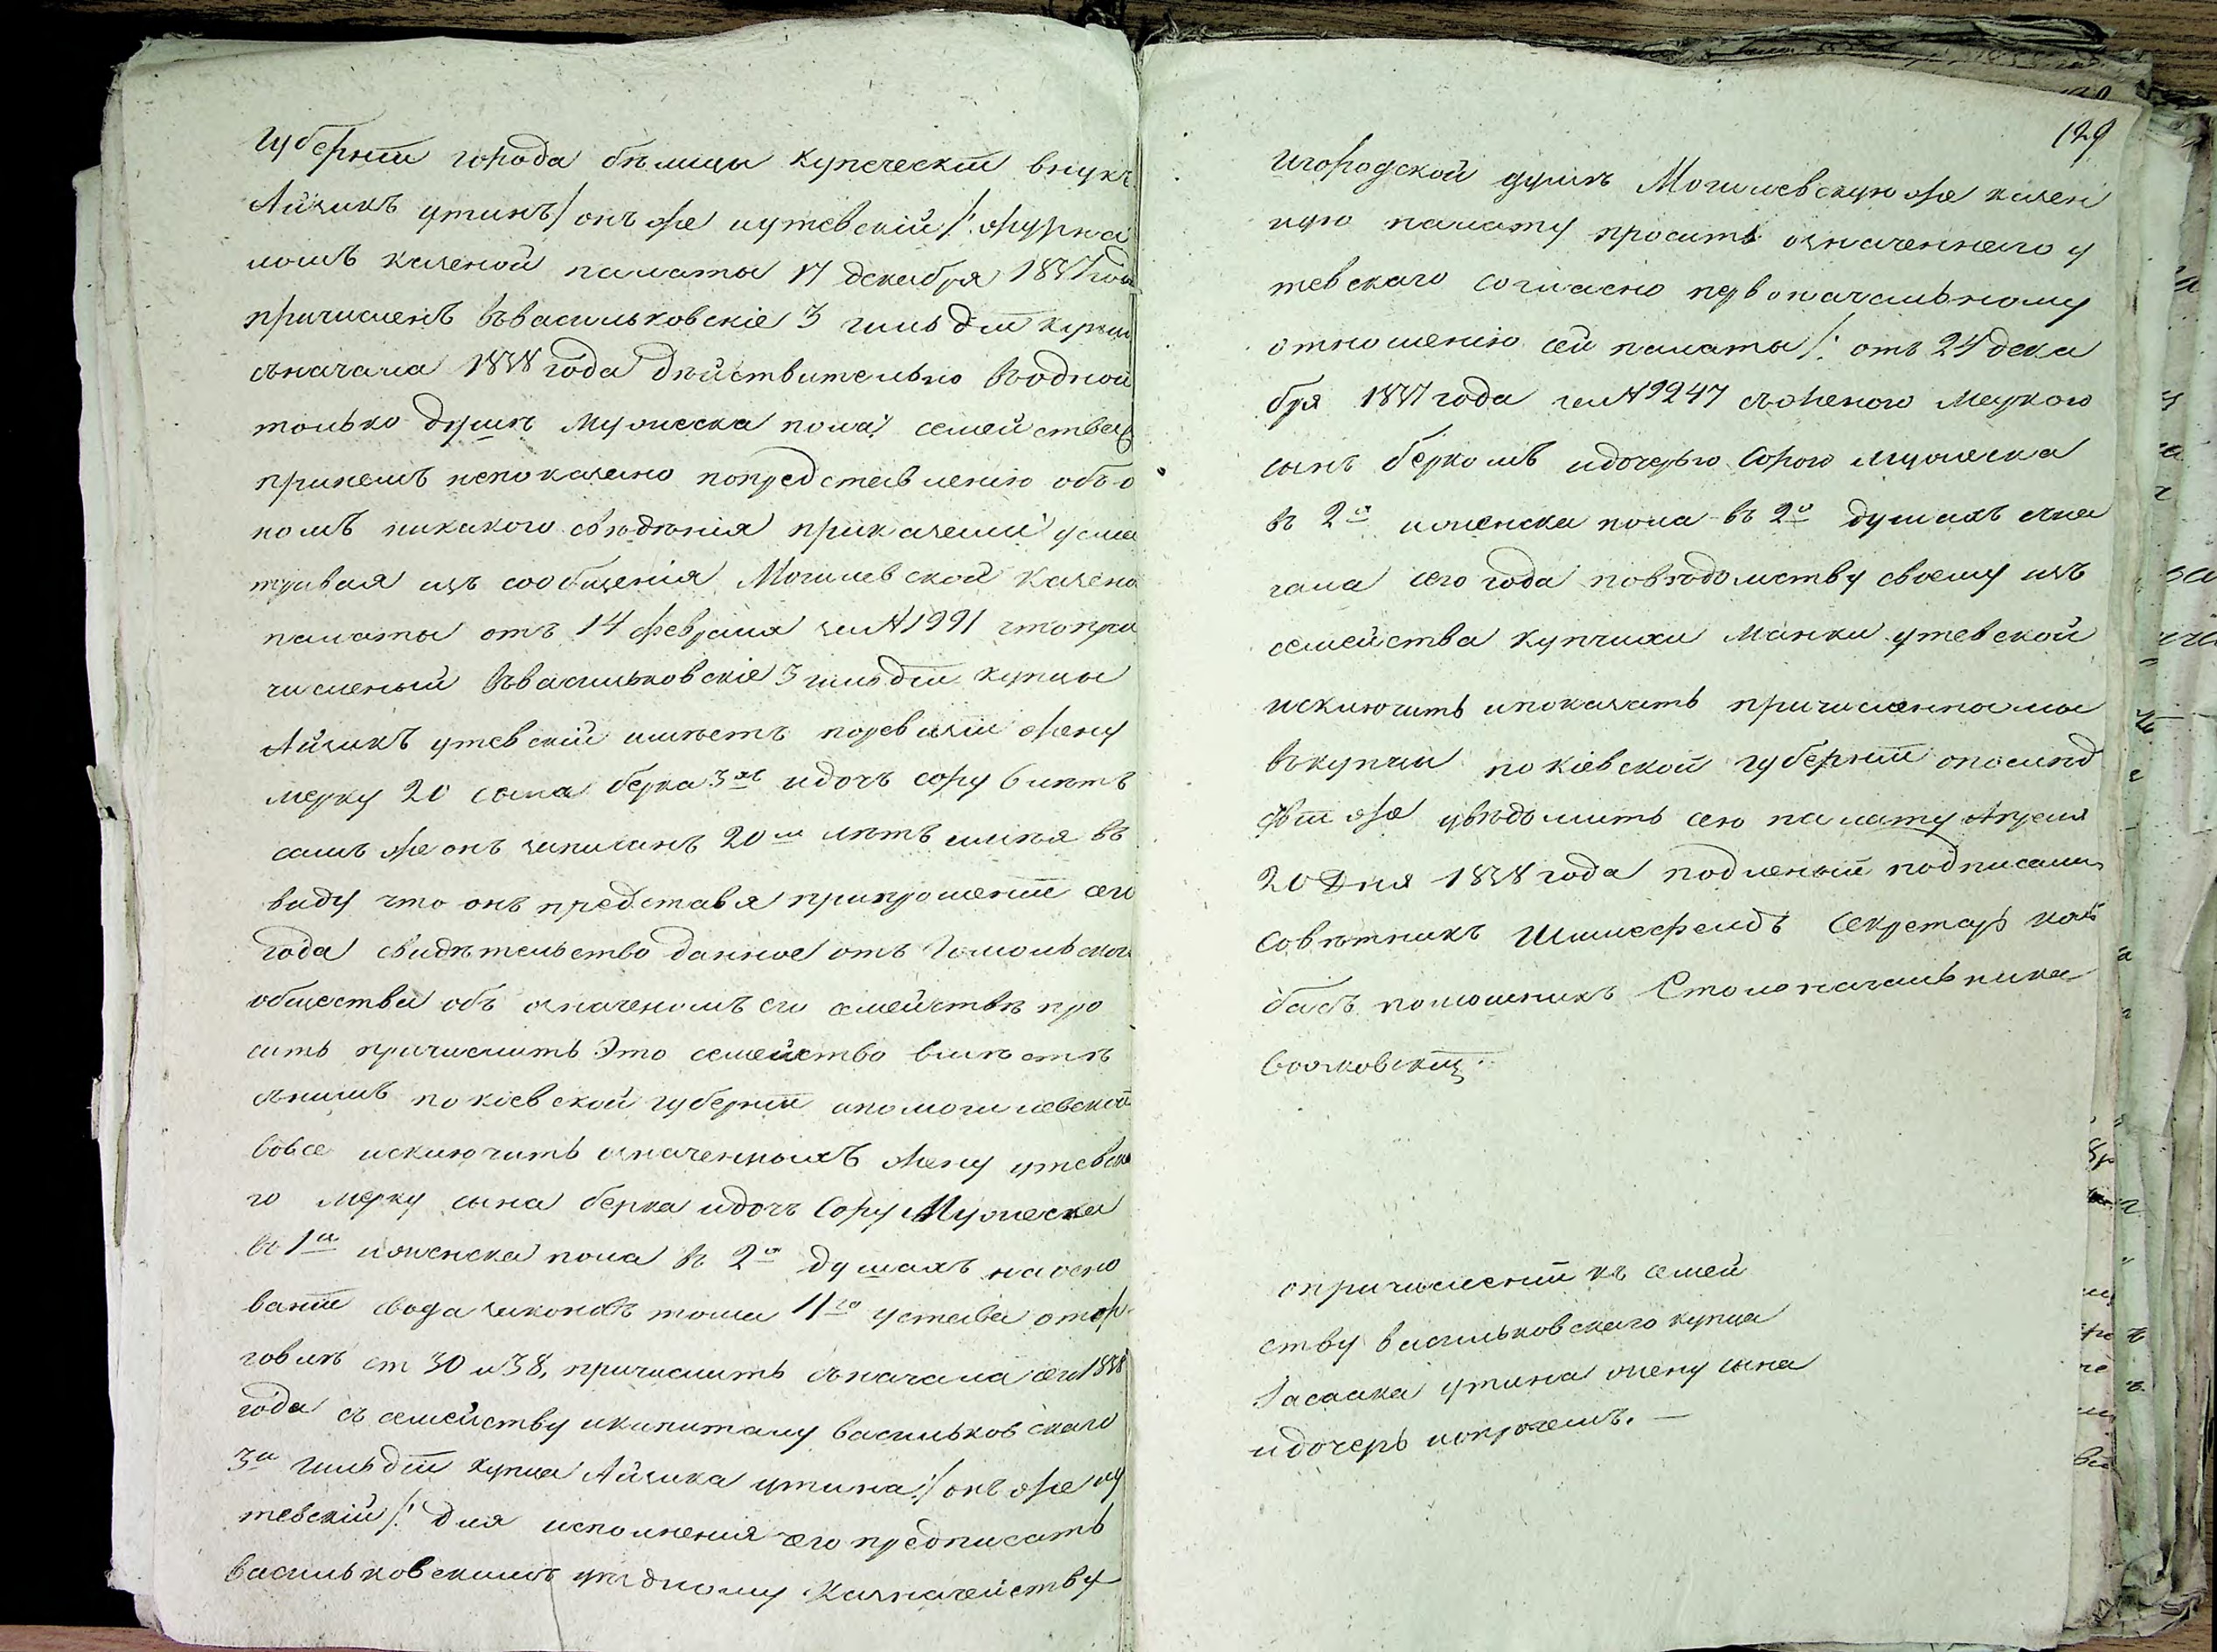 губерніи города бѣлицы купеческій внукъ
Айзикъ утинъ/ онъ же иутевскій/: журна
ломъ казеной палаты 17 декабря 1837 года
причисленъ въвасильковскіе 3 гильдіи купцы
сначала 1838 года дѣйствительно въодной
только душѣ мужеска пола: семейства
принемъ непоказано попредставленію объо
номъ никакого свѣдѣнія приказали усма
тривая изъ сообщенія Могилевской казено
палаты отъ 14 февраля за №1991 чтопри
численый въвасильковскіе 3 гильдіи купцы
Айзикъ утевскій имѣетъ поревизіи жену
мерку 20 сына берка 3хъ идочъ сору 6 лѣтъ
самъ же онъ записанъ 20и лѣтъ имѣя въ
виду что онъ представя припрошеніи сего
года свидѣтельство данное отъ Гомольского
общества объ означеномъ его семействѣ про
ситъ причислить Это семейство вмѣстѣ
снимъ покіевской губерніи апомогилевской
вовсе исключить означенныхъ жену утевска
го мерку сына берка идочъ Сору Мужеска
въ 1й иженска пола въ 2хъ душахъ наосно
ваніи свода законовъ тома 11го устава отор
говлѣ ст 30 и 38, причислить сначала сего 1838
года съ семейству икапиталу васильковскаго
3й гильдіи купца Айзика утина:/ онъ же иу
тевскій/: для исполнения чего предписать
васильковскимъ уѣздному Казначейству
129
игородской думѣ Могилевскую же казен
ную палату просить означеннаго у
тевскаго согласно первоначальному
отношенію сей палаты/: отъ 24 дека
бря 1837 года за №9247 съженою Меркою
сынъ беркомъ идочерью Сорою мужеска
въ 2х иженска пола въ 2х душахъ сна
чала сего года повѣдомству своему изъ
семейства купчихи Манки утевской
исключить ипоказать причисленными
въкупцы покіевской губерніи опослед
ствіи же увѣдомить сею палату Апреля
20 Дня 1838 года подленый подписали
Совѣтникъ Шимесфелдъ Секретарь кол
басъ помошникъ Столоначальника
опричисленіи къ семей
ству васильковскаго купца
Iасаака утина жену сына
идочерь ипрочемъ. —